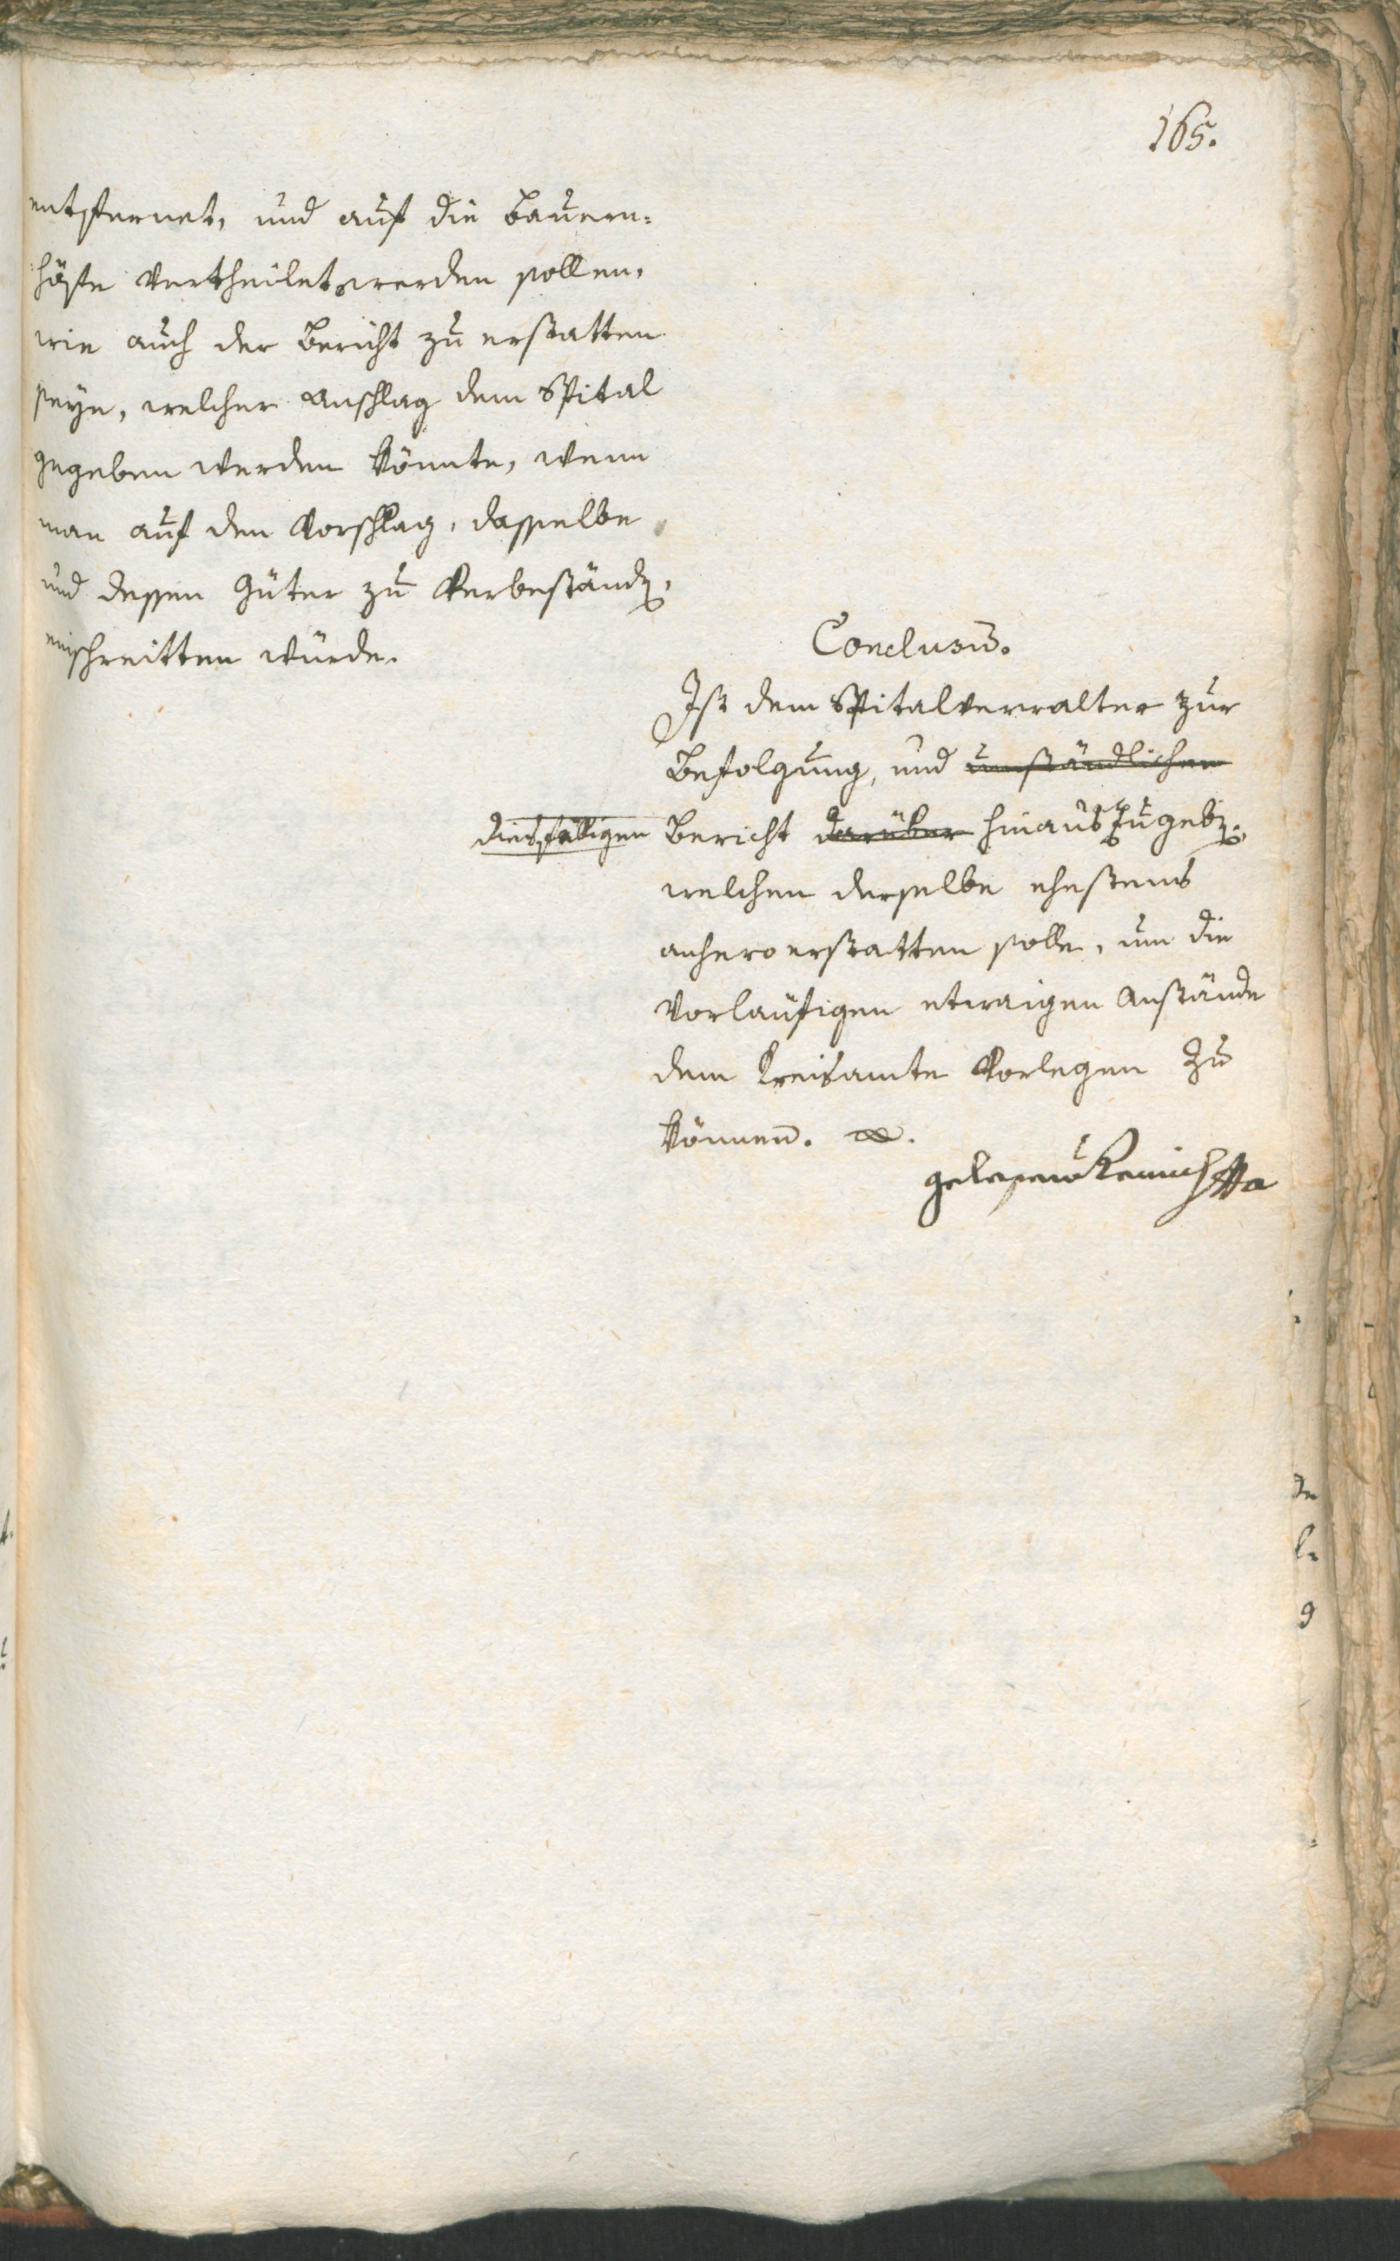 165.
entfernet, und auf die Bauern-
höfe vertheilet werden sollen,
wie auch der Bericht zu erstatten
seye, welcher Anschlag dem Spital
gegeben werden könnte, wenn
man auf den Vorschlag, dasselbe
und dessen Güter zu verbeständ,
einschreitten würde.
Conclusū.
Ist dem Spitalverwalter zur
Befolgung, und umständlichen
diesfälligen Bericht darüber hinauszugeb,
welchen derselbe ehestens
anhero erstatten solle, um die
vorläufigen etwaigen Anstände
dem Kreisamte vorlegen zu
können.
gelesen